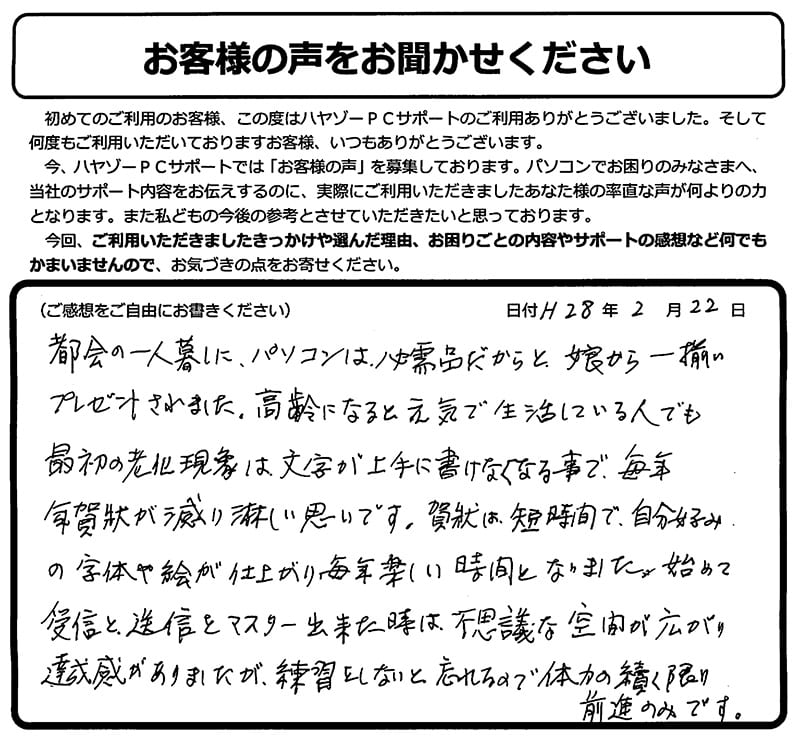 お客様の声をお聞かせください
初めてのご利用のお客様、この度はハヤゾーＰＣサポートのご利用ありがとうございました。そして
何度もご利用いただいておりますお客様、いつもありがとうございます。
今、ハヤゾーＰＣサポートでは「お客様の声」を募集しております。パソコンでお困りのみなさまへ、
当社のサポート内容をお伝えするのに、実際にご利用いただきましたあなた様の率直な声が何よりの力
となります。また私どもの今後の参考とさせていただきたいと思っております。
今回、ご利用いただきましたきっかけや選んだ理由、お困りごとの内容やサポートの感想など何でも
かまいませんので、お気づきの点をお寄せください。
（ご感想をご自由にお書きください） 日付 H 28 年 2 月 22 日
都会の一人暮しに、パソコンは、必需品だからと、娘から一揃い
プレゼントされました。高齢になると元気で生活している人でも
最初の老化現象は、文字が上手に書けなくなる事で、毎年
年賀状が減り淋しい思いです。賀状は、短時間で、自分好み
の字体や絵が仕上がり毎年楽しい時間となりました。始めて
受信と、送信をマスター出来た時は、不思議な空間が広がり
達成感がありましたが、練習をしないと忘れるので体力の続く限り
前進のみです。